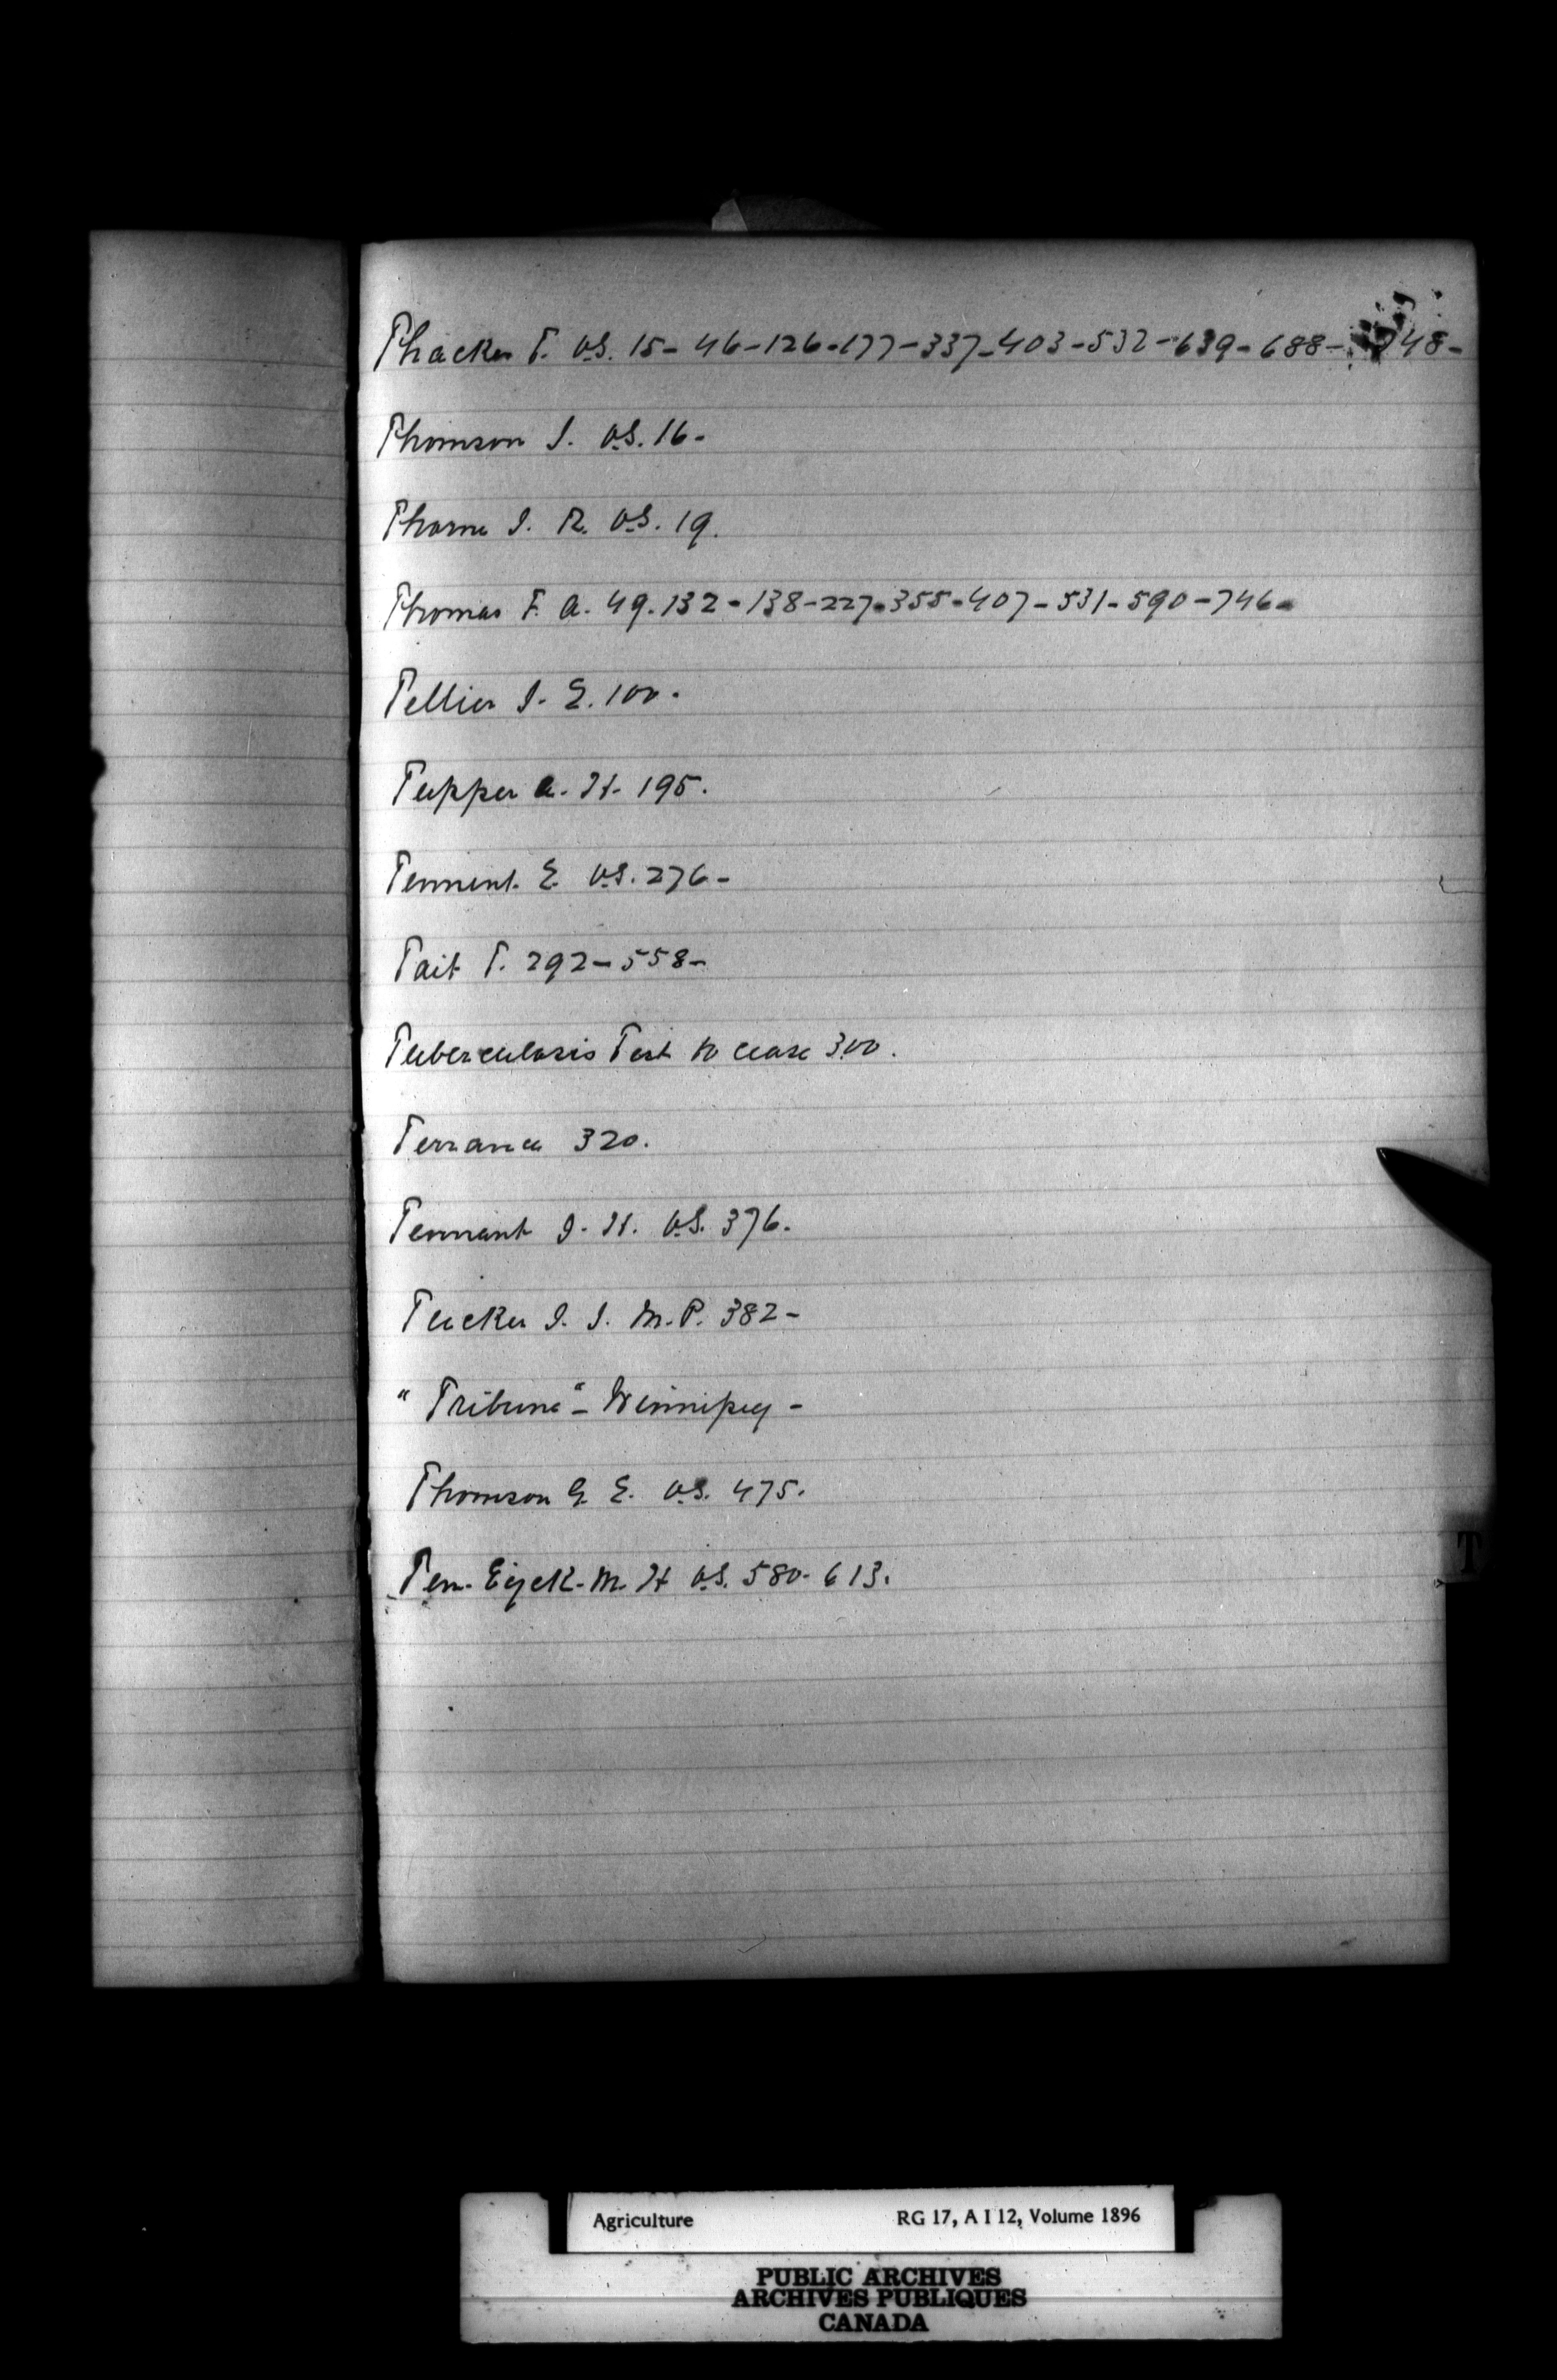 Thacker T. V.S. 15- 46-126-177-337-403-532-639-688- 748-
Thomson J. V.S. 16-
Thorne J. R. V.S. 19.
Thomas F. A. 49.132-138-227-355-407-531-590-746-
Tellier J. E. 100.
Tupper C. H. 195.
Tennent. E. V.S. 276-
Tait T. 292-558-
Tuberculosis Test to cease 300.
Terrance 320.
Tennant J. H. V.S. 376.
Tucker J. J. M.P. 382-
"Tribune"- Winnipeg -
Thomson G. E. V.S. 475.
Ten-Eyck-M. H V.S. 580-613.
T
Agriculture RG 17, A I 12, Volume 1896
PUBLIC ARCHIVES
ARCHIVES PUBLIQUES
CANADA